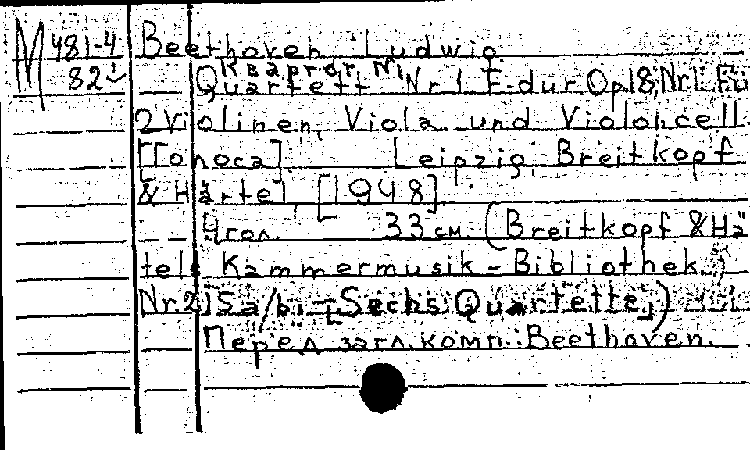 М 481-4 Beethoven Ludwig
82 Квартет №1
Quartett Nr 1 F-dur Op18, Nr1. Fü
2 Violinen, Viola und Violoncell
[Голоса] Leipzig, Breitkopf
& Härtel, [1948]
4 гол. 33 см. (Breitkopf & Hä
tels Kammermusik-Bibliothek.
Nr. 2) Sechs Quartette,)
Перед загл. комп.: Beethoven.